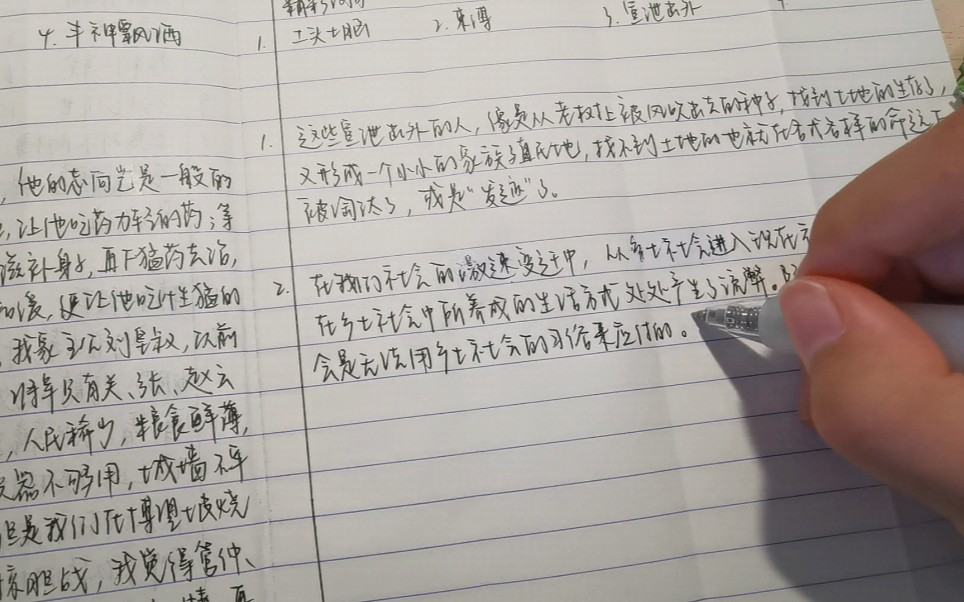 4. 丰神飘洒
1. 土头土脑 2. 束缚 3. 直泄出外
1. 这些直泄出外的人,像是从老树上被风吹出去的种子,找到土地的生存了,
又形成一个小小的家族殖民地,找不到土地的也就在各式各样的命运下
被淘汰了,或是“发迹”了。
2. 在我们社会的激速变迁中,从乡土社会进入现代
在乡土社会中所养成的生活方式处处产生了流弊。
会是无法用乡土社会的习俗来应付的。
他的志向岂是一般的
让他吃药力轻的药;等
滋补身子,再下猛药去治,
便让他吃生猛的
我家主公刘皇叔,以前
将军只有关、张、赵云
人民稀少,粮食鲜薄,
器不够用,城墙不牢
但是我们在博望坡烧
胆战,我觉得管仲、